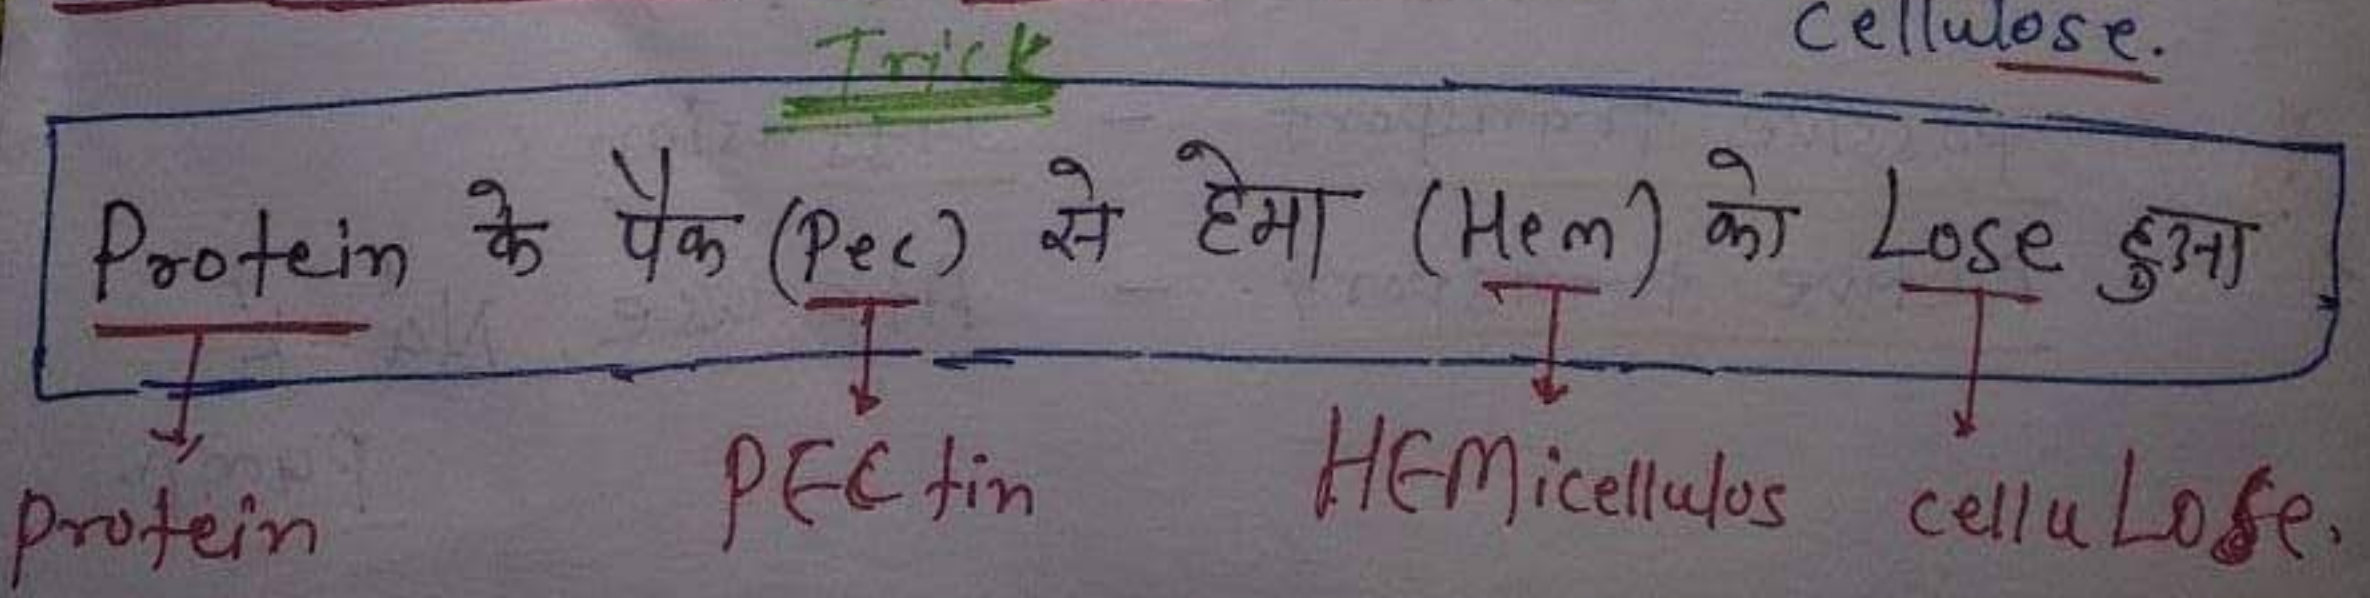 cellulose.
Trick
Protein के पैक (Pec) से हेमा (Hem) को Lose हुआ
protein PECtin HEMicellulos celluLose.